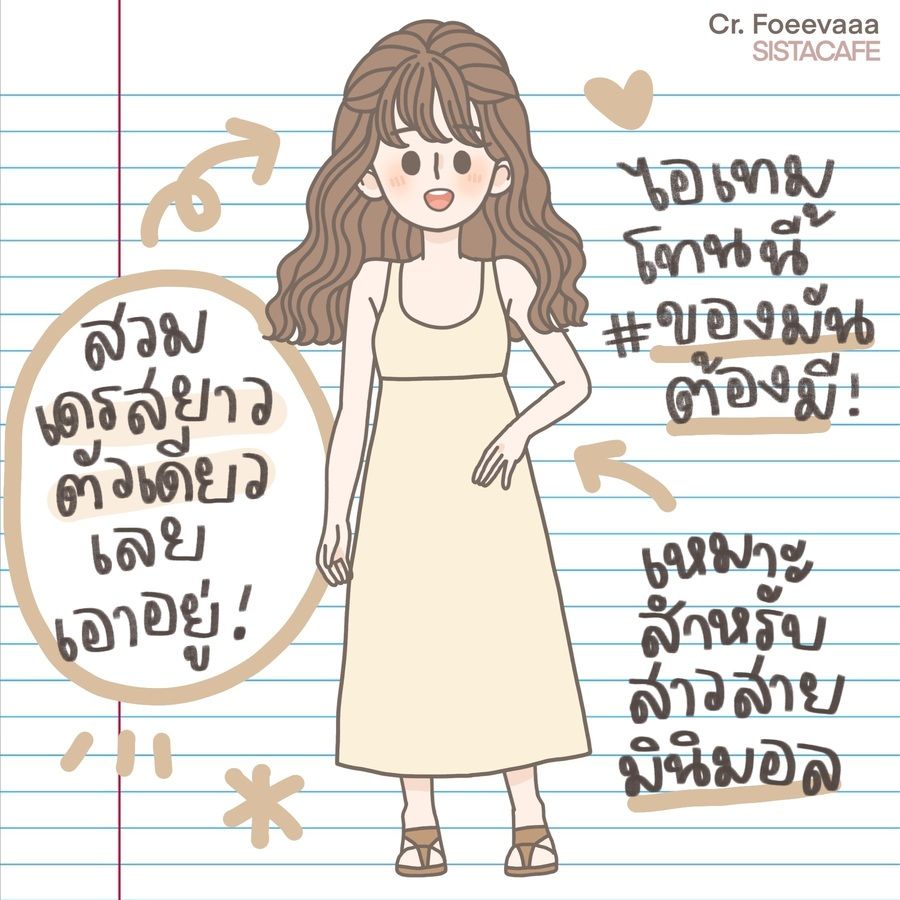 Cr. Foeevaaa
SISTACAFE
ไอเทม
โทนนี้
#ของมัน
ต้องมี!
สวม
เดรสยาว
ตัวเดียว
เลย
เอาอยู่!
เหมาะ
สำหรับ
สาวสาย
มินิมอล